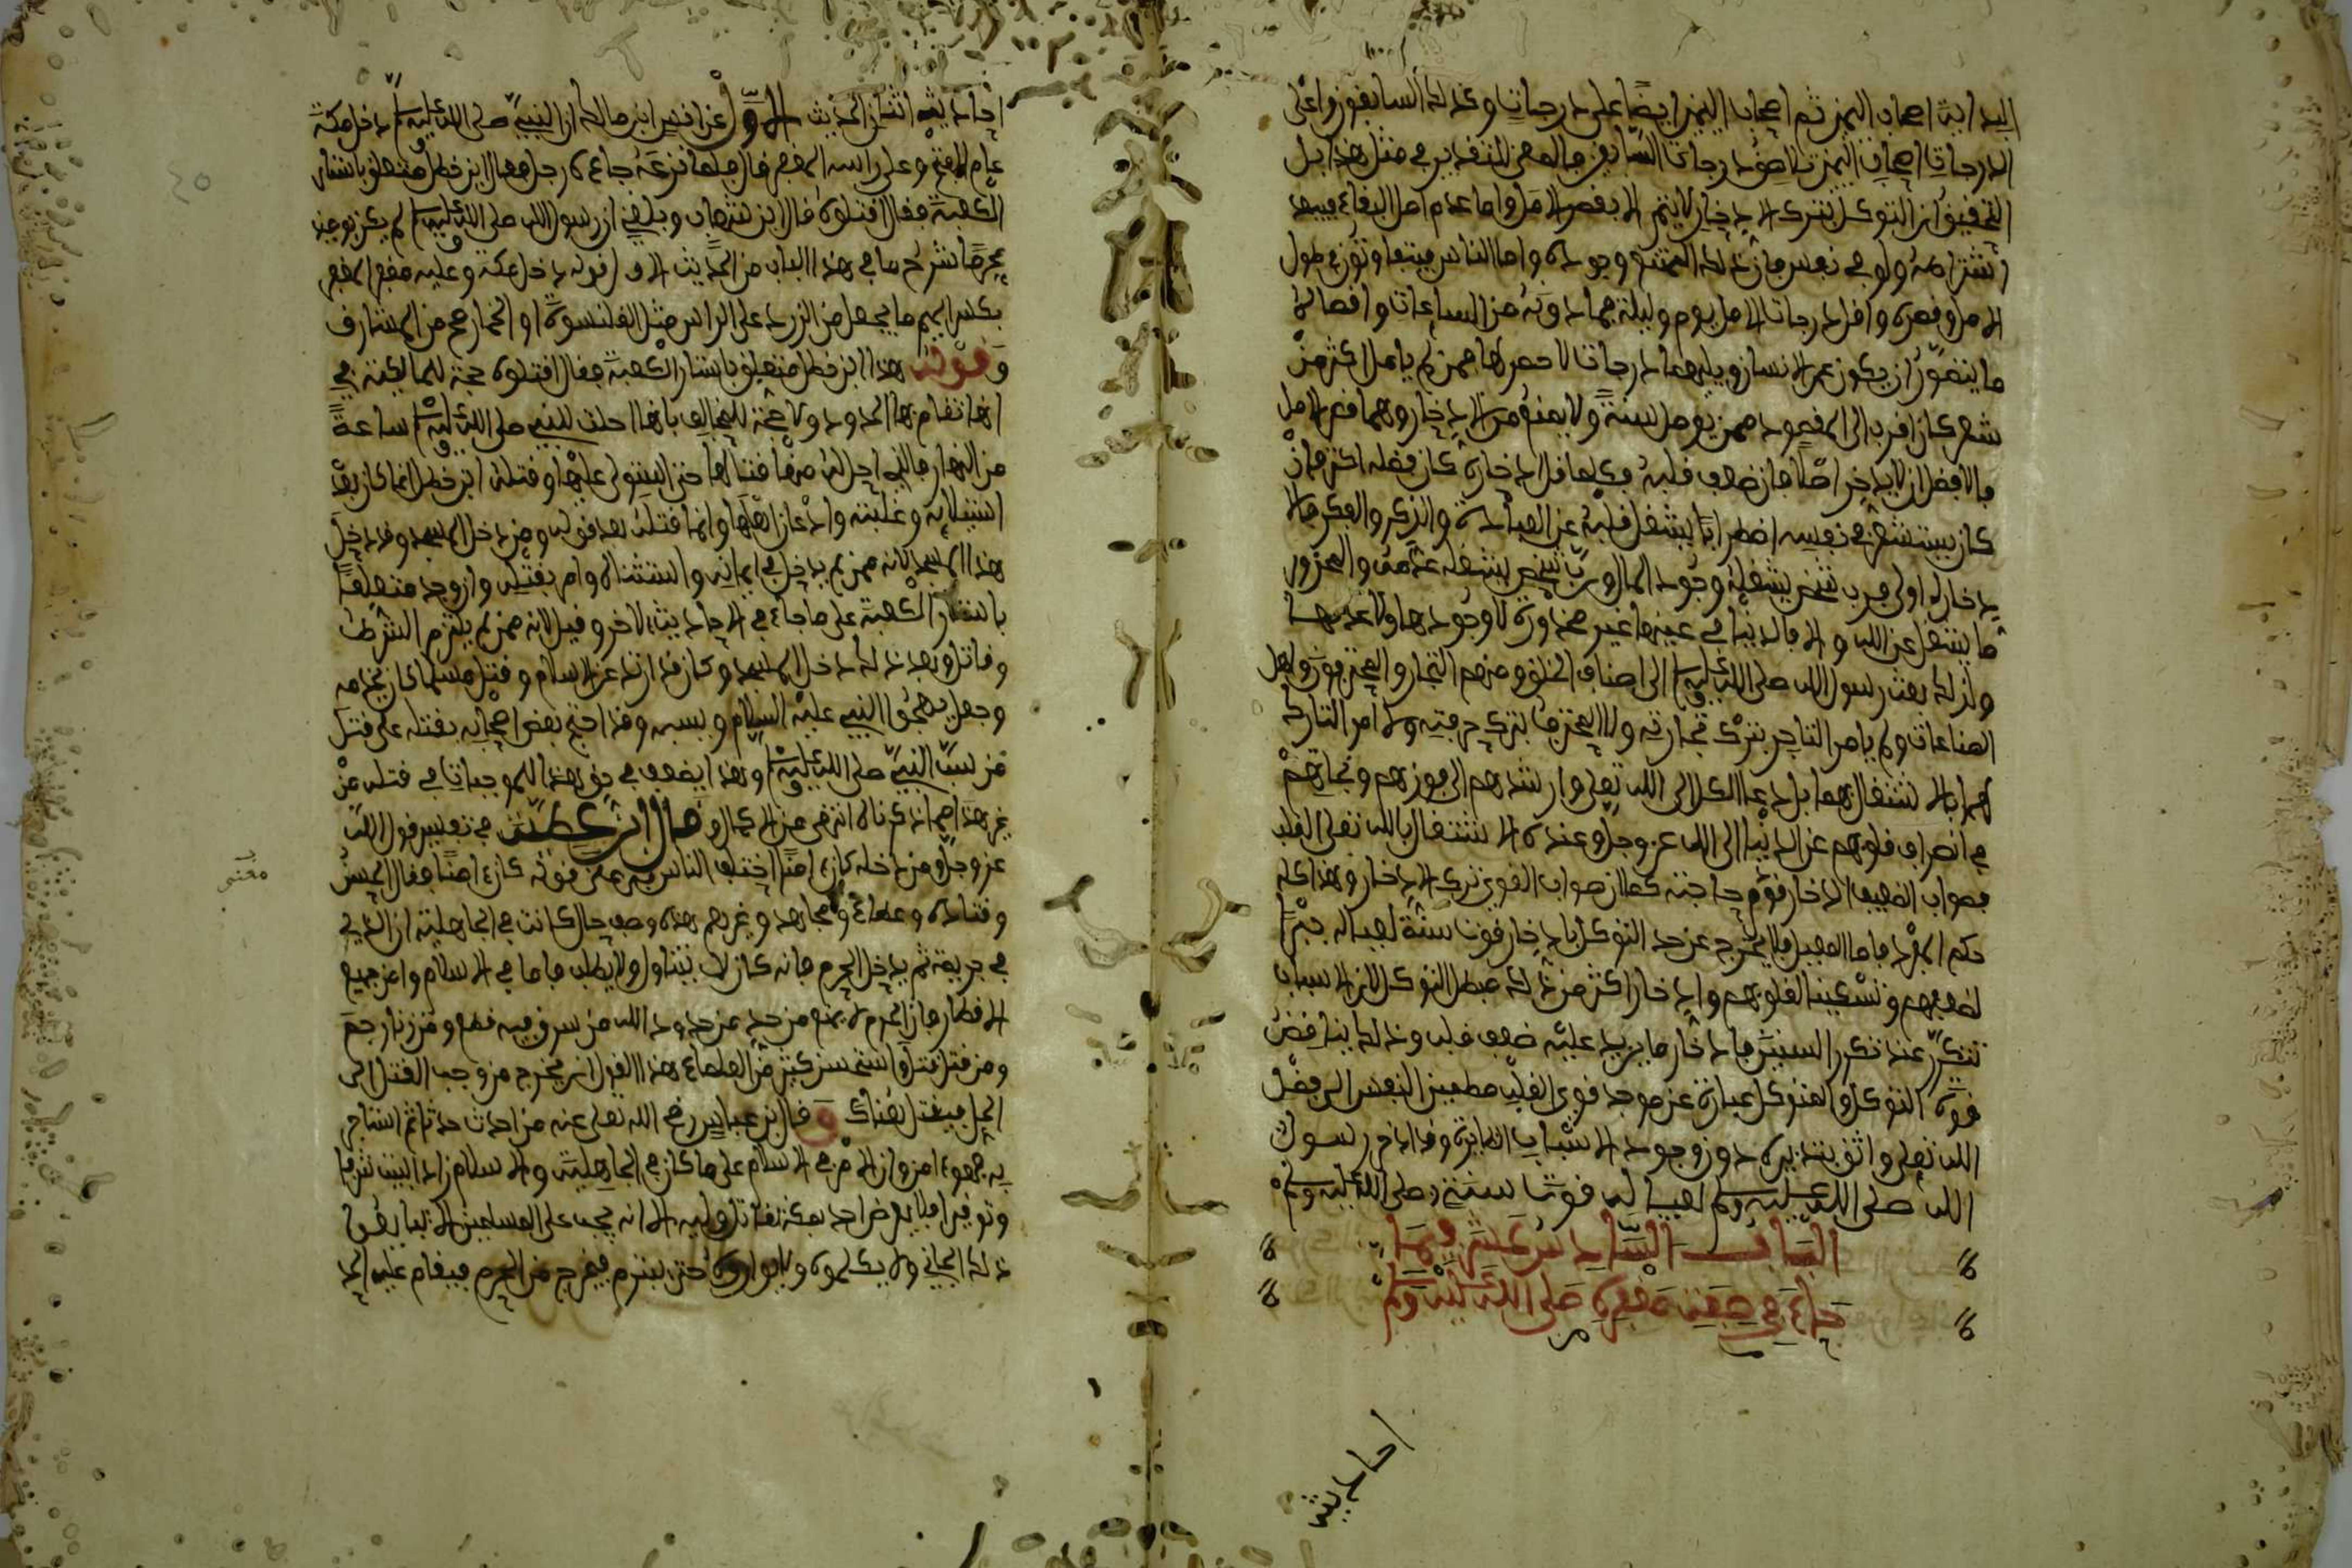 البداية اصحاب اليمين ثم اصحاب اليمين ايضا على درجات وكذلك السابقون واعلى
الدرجات اصحاب اليمين تلاصق درجات السابقين فلا معنى للتقدير في مثل هذا بل
التحقيق ان التوكل بترك الادخار لا يتم الا بقصر الامل واما عدم امل البقاء فيبعد
اشتراطه ولو في نفس فان ذلك كالممتنع وجوده واما الناس فيتفاوتون في طول
الامل وقصره واقل درجات الامل يوم وليلة فما دونه من الساعات واقصاه
ما يتصور ان يكون عمر الانسان وبينهما درجات لا حصر لها فمن لم يامل اكثر من
شهر كان اقرب الى المقصود ممن يؤمل سنة
فالافضل ان لا يدخر اصلا فان ضعف قلبه فكلما قل ادخاره كان فضله اكثر فان
كان يستشعر في نفسه اضطرابا يشغل قلبه عن العبادة والذكر والفكر فالا
دخار له اولى فرب شخص يشغله وجود المال ورب شخص يشغله عدمه والمحذور
ما يشغل عن الله والا فالدنيا في عينها غير محذورة لا وجودها ولا عدمها
ولذلك بعث رسول الله صلى الله عليه وسلم الى اصناف الخلق ومنهم التجار والمحترفون واهل
الصناعات ولم يامر التاجر بترك تجارته ولا المحترف بترك حرفته ولا امر التارك
لهما بالاشتغال بهما بل دعا الكل الى الله تعلى وارشدهم الى فوزهم ونجاتهم
في انصراف قلوبهم عن الدنيا الى الله عز وجل وعمدة الاشتغال بالله تعلى القلب
فصواب الضعيف ادخار قوت حاجته كما ان صواب القوي ترك الادخار وهذا كله
حكم المفرد فاما المعيل فلا يخرج عن حد التوكل بادخار قوت سنة لعياله جبرا
لضعفهم وتسكينا لقلوبهم وادخار اكثر من ذلك مبطل التوكل لان الاسباب
تتكرر عند تكرر السنين فادخار ما يزيد عليه ضعف قلب وذلك يناقض
قوة التوكل والمتوكل عبارة عن موحد قوي القلب مطمئن النفس الى فضل
الله تعلى واثق بتدبيره دون وجود الاسباب الظاهرة وقد ادخر رسول
الله صلى الله عليه وسلم لعياله قوت سنة صلى الله عليه وسلم
الباب السادس عشر فيما
جاء في صفة مغفره صلى الله عليه وسلم
احاديث
احاديث اثنان الحديث الاول عن انس ابن مالك ان النبي صلى الله عليه وسلم دخل مكة
عام الفتح وعلى راسه المغفر قال فلما نزعه جاءه رجل فقال ابن خطل متعلق باستار
الكعبة فقال اقتلوه قال ابن شهاب وبلغني ان رسول الله صلى الله عليه وسلم لم يكن يومئذ
محرما شرح ما في هذا الباب من الحديث الاول قوله دخل مكة وعليه مغفر المغفر
بكسر الميم ما يجعل من الزرد على الراس مثل القلنسوة او الخمار صح من المشارق
وقوله هذا ابن خطل متعلق باستار الكعبة فقال اقتلوه حجة للمالكية في
انها تقام بها الحدود ولا حجة للمخالف بانها احلت للنبي صلى الله عليه وسلم ساعة
من النهار فالذي احل له منها قتالها حتى استولى عليها وقتل ابن خطل انما كان بعد
استيلائه وغلبته واذعان اهلها وانما قتله بعد قوله ومن دخل المسجد وقد دخل
هذا المسجد لانه ممن لم يدخل في امانه واستثناه وامر بقتله وان وجد متعلقا
باستار الكعبة على ما جاء في الاحاديث الاخر وقيل لانه ممن لم يلتزم الشرط
وقاتل وبعد ذلك دخل المسجد وكان قد ارتد عن الاسلام وقتل مسلما كان يخدمه
وجعل يهجو النبي عليه السلام ويسبه وقد احتج بعض اصحابه بقتله على قتل
من سب النبي صلى الله عليه وسلم وهذا يضعف في حق هذا للموجبات في قتله من
غير هذا مما ذكرناه انتهى من الاكمال وقال ابن عطية في تفسير قول الله
عز وجل ومن دخله كان ءامنا اختلف الناس في معنى قوله كان ءامنا فقال الحسن
وقتادة وعطاء ومجاهد وغيرهم هذه وصف حال كانت في الجاهلية ان الذي
في جريمة ثم يدخل الحرم فانه كان لا يتناول ولا يطلب فاما في الاسلام وامن جميع
الاقطار فان الحرم لا يمنع من حد من حدود الله من سرق فيه قطع ومن زنا رجم
ومن قتل قتل واستحسن كثير من العلماء هذا القول ان يخرج من وجب القتل الى
الحل فيقتل هناك وقال ابن عباس رضي الله تعلى عنه من احدث حدثا ثم استجار
به فهو ءامن وان الامر في الاسلام على ما كان في الجاهلية والاسلام زاد البيت شرفا
وتوقيرا فلا يعرض احد بمكة لقاتل وليه الا انه يجب على المسلمين الا يبايعوا
ذلك الجاني ولا يكلموه ولا يؤووه حتى يتبرم فيخرج من الحرم فيقام عليه الحد
معنى